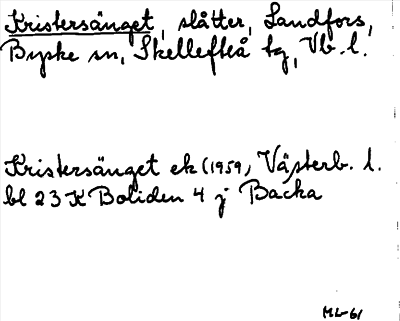 Kristersänget, slåtter, Landfors,
Byske sn, Skellefteå tg, Vb. l.
Kristersänget ek (1959, Västerb. l.
bl 23 K Boliden 4 j Backa
ML-61